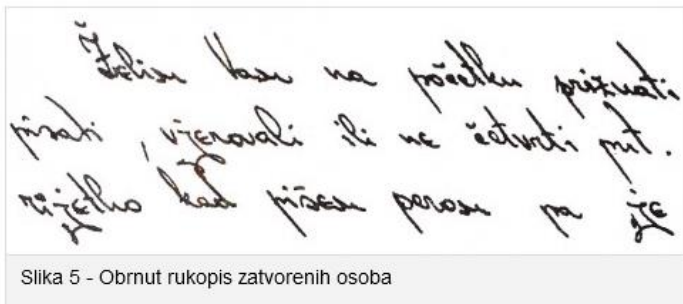 Želim Vam na početku priznati
pisati, vjerovali ili ne četvrti put.
rijetko kad pišem perom pa je
Slika 5 - Obrnut rukopis zatvorenih osoba